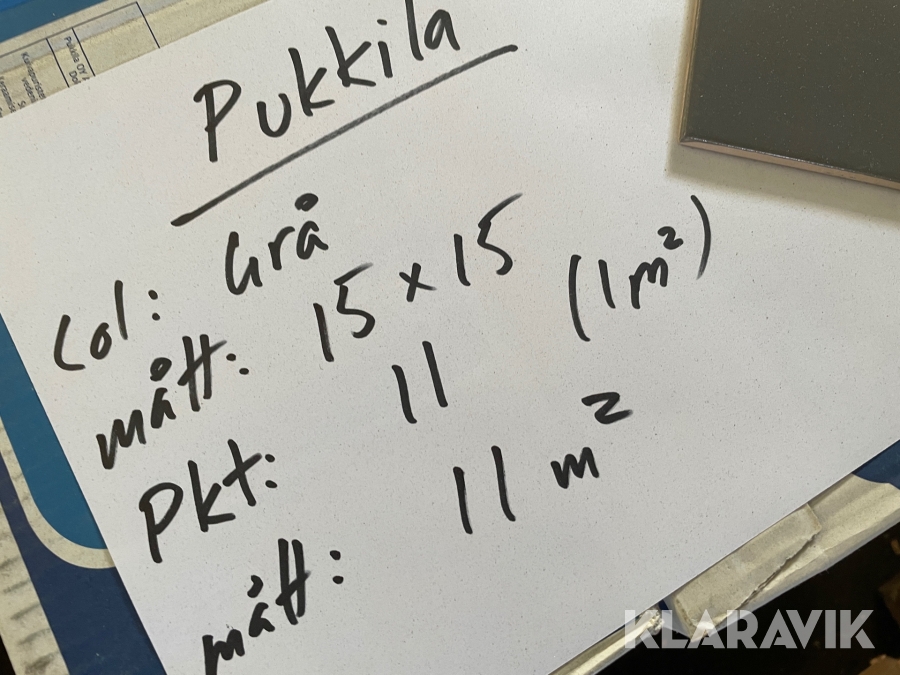 Pukkila
Col: Grå
mått: 15 x 15 (1m²)
Pkt: 11
mått: 11 m²
Pukkila OY
KLARAVIK